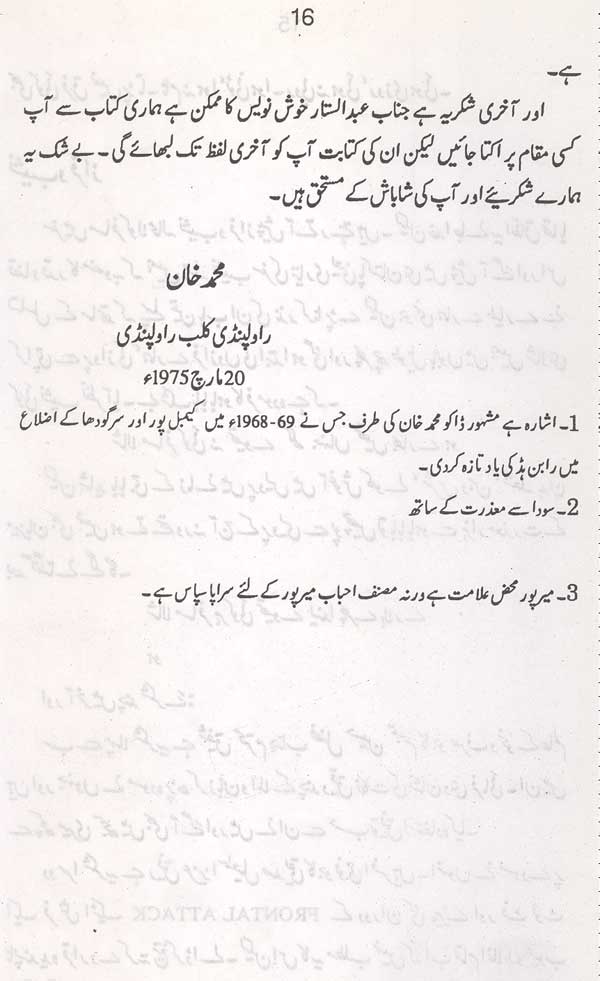 16
ہے۔
اور آخری شکریہ ہے جناب عبدالستار خوش نویس کا ممکن ہے ہماری کتاب سے آپ
کسی مقام پر اکتا جائیں لیکن ان کی کتابت آپ کو آخری لفظ تک لبھائے گی۔ بے شک یہ
ہمارے شکریئے اور آپ کی شاباش کے مستحق ہیں۔
محمد خان
راولپنڈی کلب راولپنڈی
20 مارچ 1975ء
1۔ اشارہ ہے مشہور ڈاکو محمد خان کی طرف جس نے 69-1968ء میں کیمبل پور اور سرگودھا کے اضلاع
میں رابن ہڈ کی یاد تازہ کر دی۔
2۔ سودا سے معذرت کے ساتھ
3۔ میرپور محض علامت ہے ورنہ مصنف احباب میرپور کے لئے سراپا سپاس ہے۔